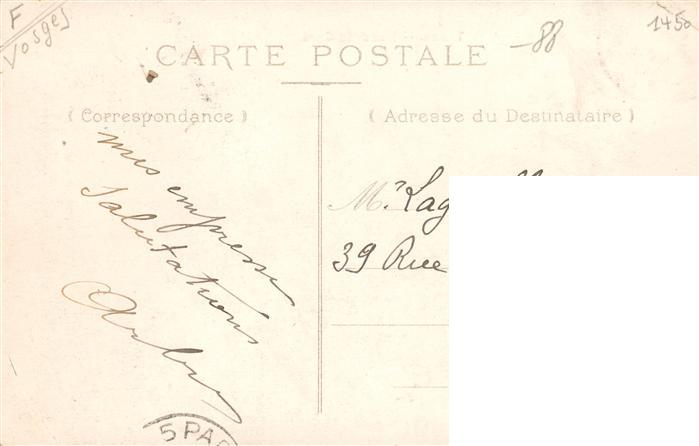 F
Vosges
CARTE POSTALE
88
1450
( Correspondance )
( Adresse du Destinataire )
mes empressé
Salutations
Mr. Lag
39 Rue
5 PAR